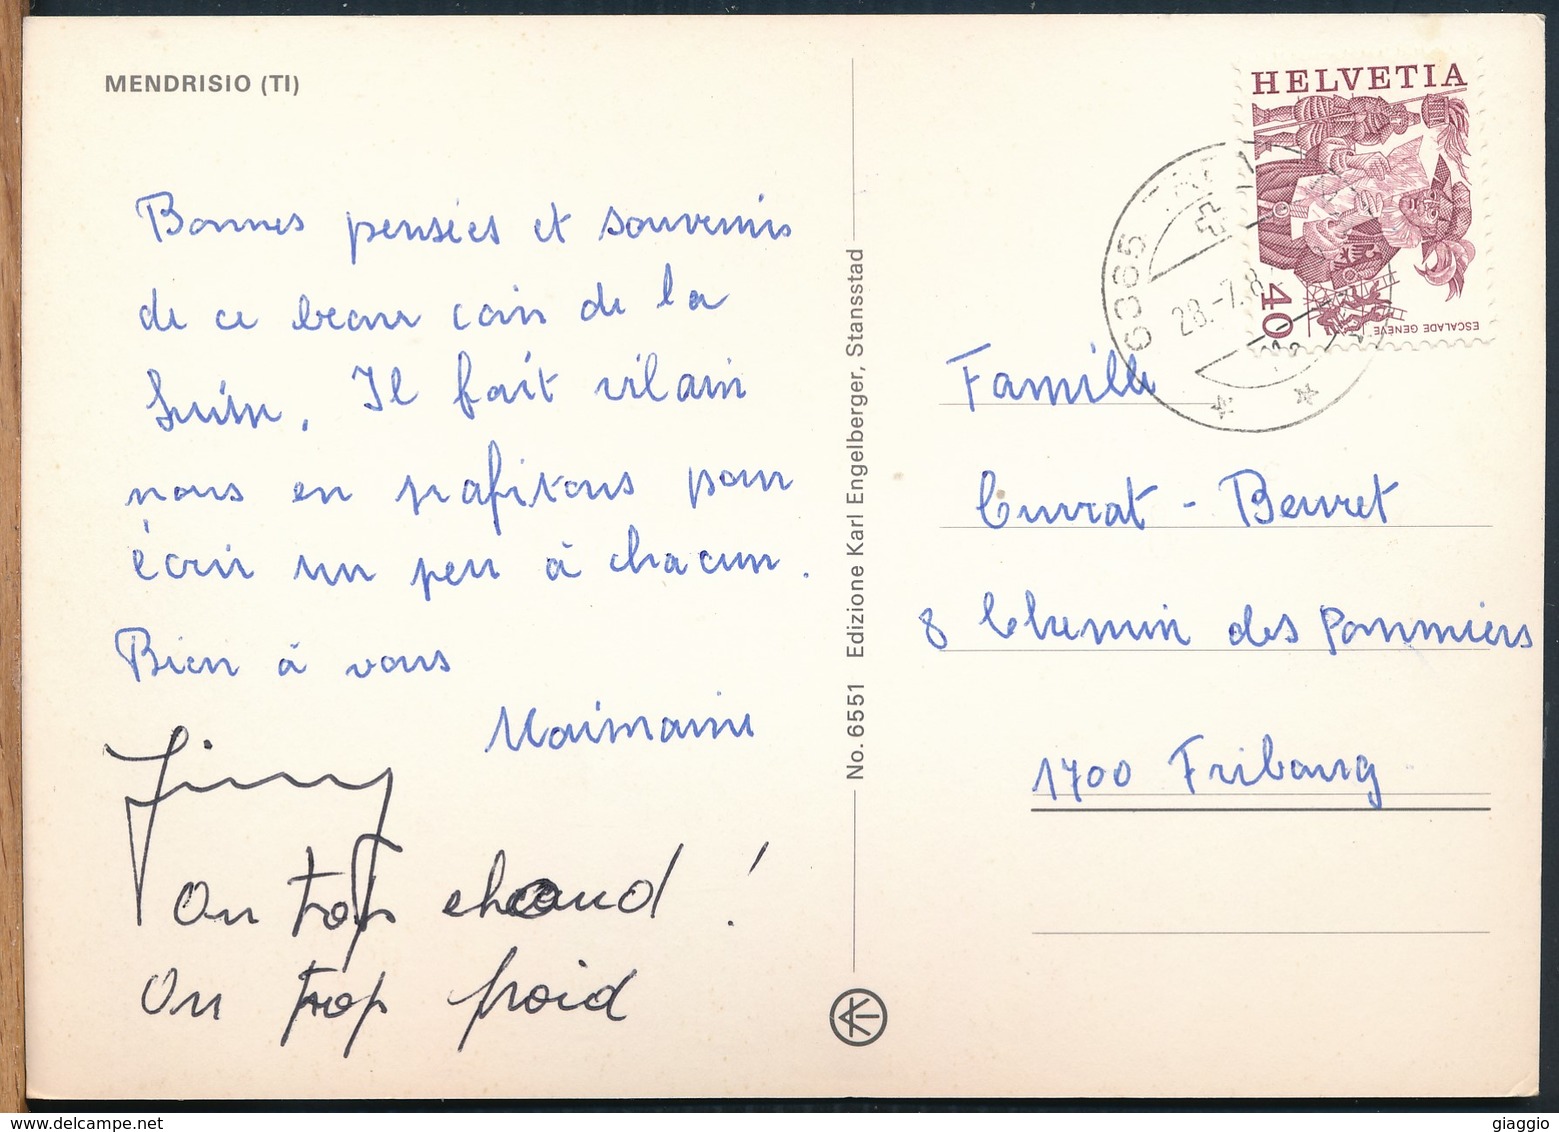 MENDRISIO (TI)
Bonnes pensées et souvenirs
de ce beau coin de la
Suisse. Il fait vilain
nous en profitons pour
écrire un peu à chacun.
Bien à vous
On trop chaud !
On trop froid
No. 6551 Edizione Karl Engelberger, Stansstad
HELVETIA
40
ESCALADE GENÈVE
6365
28.-7.8
Famille
Curat - Beuret
8 Chemin des Pommiers
1700 Fribourg
delcampe.net
giaggio